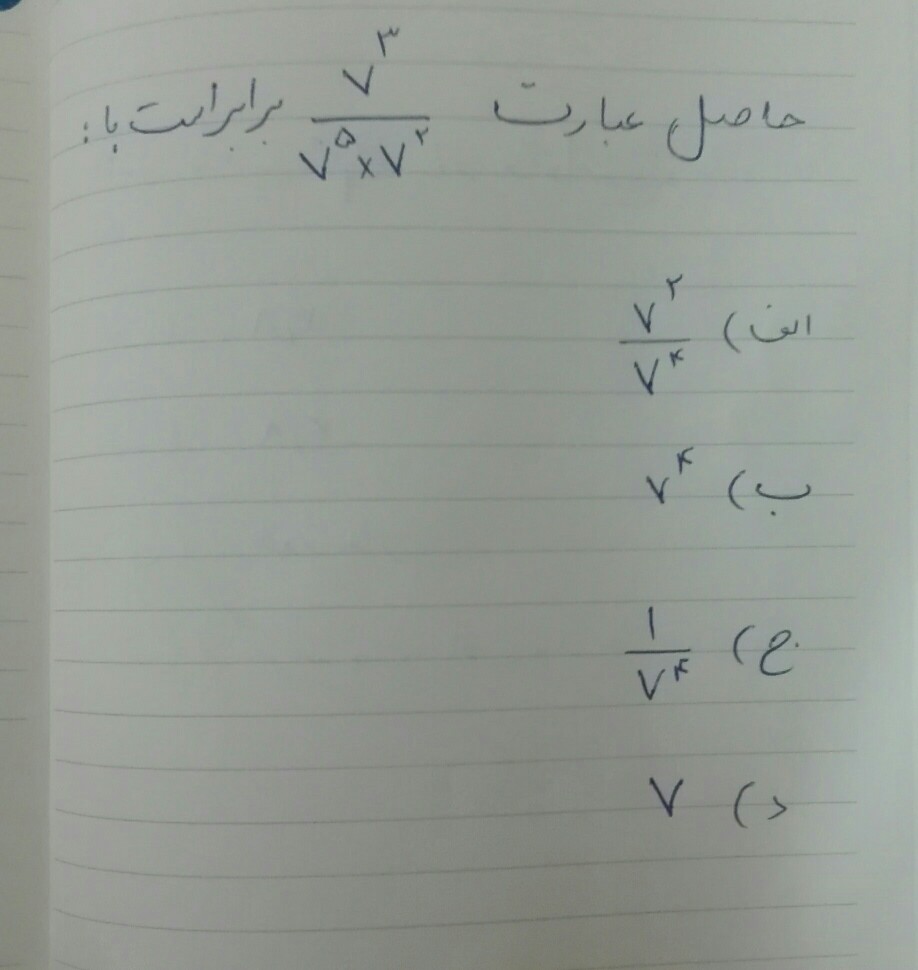 حاصل عبارت ۷^۳ / ۷^۵ × ۷^۲ برابر است با:
الف) ۷^۲ / ۷^۴
ب) ۷^۴
ج) ۱ / ۷^۴
د) ۷